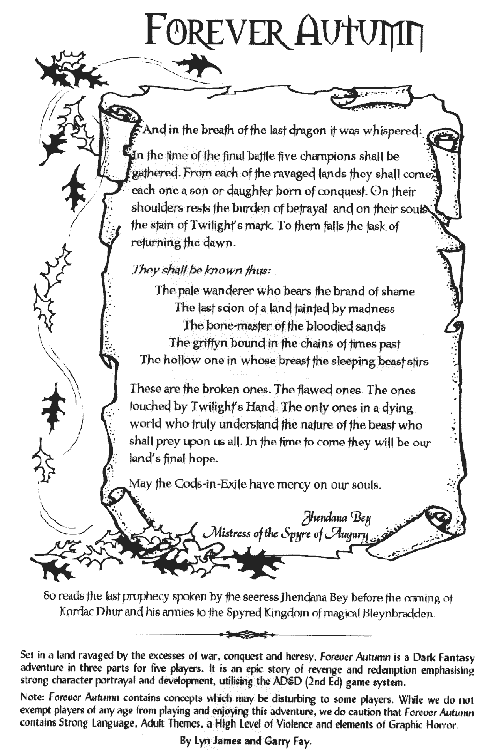 FOREVER AUTUMN
And in the breath of the last dragon it was whispered:
In the time of the final battle five champions shall be
gathered. From each of the ravaged lands they shall come,
each one a son or daughter born of conquest. On their
shoulders rests the burden of betrayal and on their souls
the stain of Twilight's mark. To them falls the task of
returning the dawn.
They shall be known thus:
The pale wanderer who bears the brand of shame
The last scion of a land tainted by madness
The bone-master of the bloodied sands
The griffyn bound in the chains of times past
The hollow one in whose breast the sleeping beast stirs
These are the broken ones. The flawed ones. The ones
touched by Twilight's Hand. The only ones in a dying
world who truly understand the nature of the beast who
shall prey upon us all. In the time to come they will be our
land's final hope.
May the Gods-in-Exile have mercy on our souls.
Jhendana Bey
Mistress of the Spyre of Augury
So reads the last prophecy spoken by the seeress Jhendana Bey before the coming of
Kordac Dhur and his armies to the Spyred Kingdom of magical Bleynbradden.
Set in a land ravaged by the excesses of war, conquest and heresy, Forever Autumn is a Dark Fantasy
adventure in three parts for five players. It is an epic story of revenge and redemption emphasising
strong character portrayal and development, utilising the AD&D (2nd Ed) game system.
Note: Forever Autumn contains concepts which may be disturbing to some players. While we do not
exempt players of any age from playing and enjoying this adventure, we do caution that Forever Autumn
contains Strong Language, Adult Themes, a High Level of Violence and elements of Graphic Horror.
By Lyn James and Garry Fay.